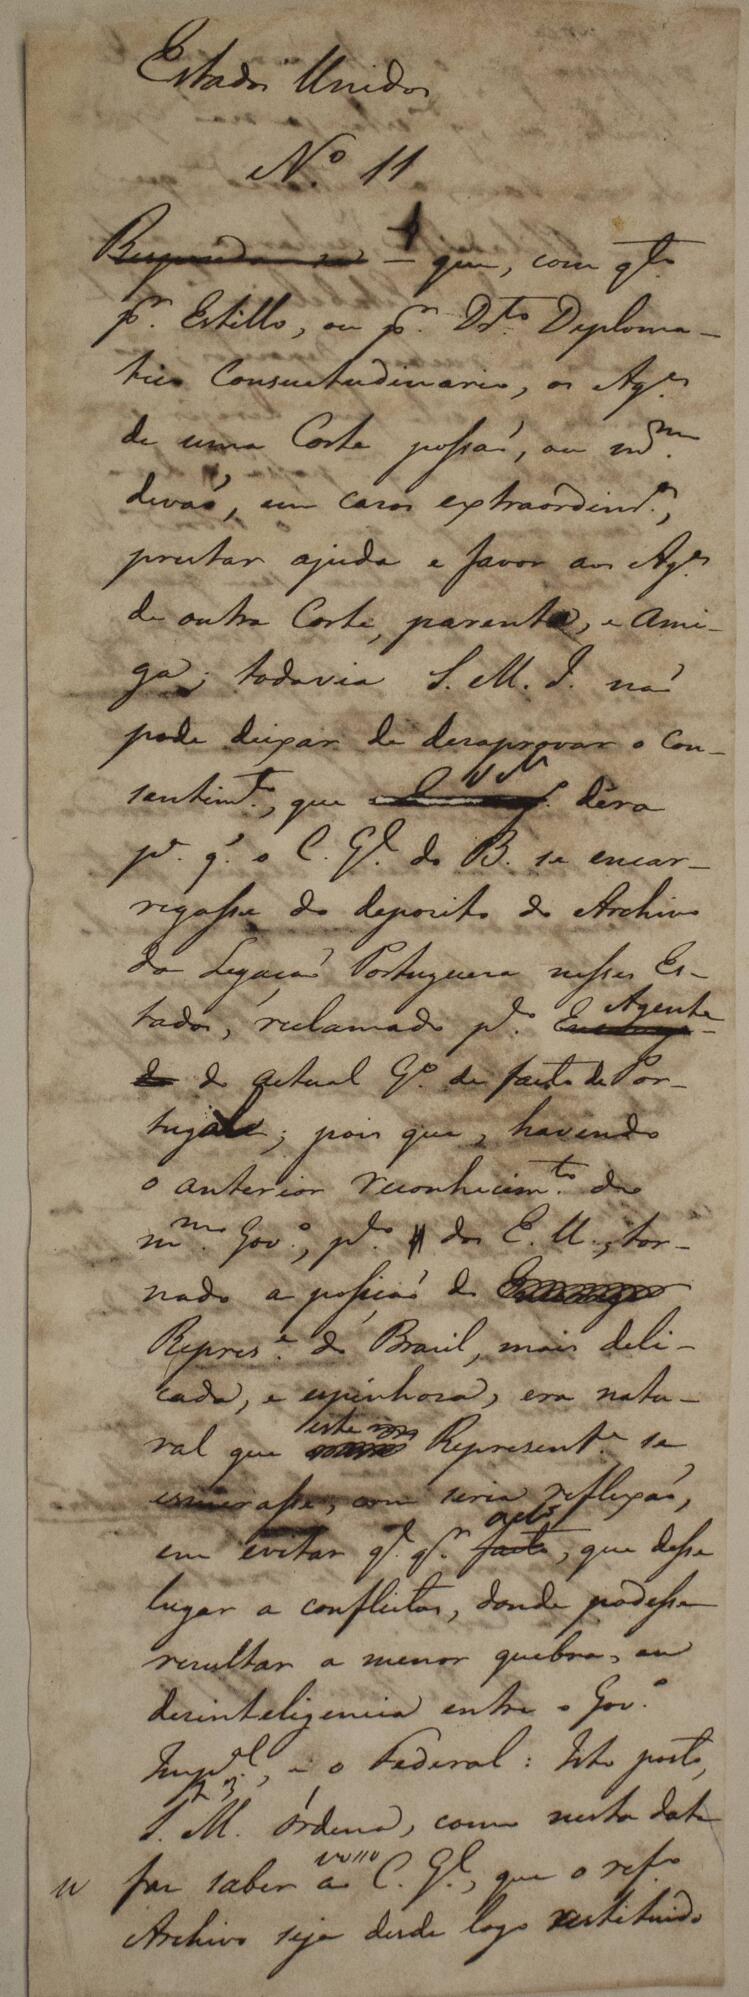 Estados Unidos
N.º 11
que, com qto
pr. Estillo, ou pr. Dr.to Diploma-
tico Consuetudinario, os Ag.es
de uma Corte possaõ, ou m.mo
devaõ, em casos extraordin.os,
prestar ajuda e favor aos Ag.es
de outra Corte, parenta, e Ami-
ga; todavia S. M. I. naõ
pode deixar de desaprovar o con-
sentim.to, que V. M. déra
p.a q̃ o C. G.l do B. se encar-
regasse do deposito do Archivo
da Legaçaõ Portugueza nesses Es-
tados, reclamado p.lo Agente
do actual G.o de facto de Por-
tugal; pois que, havendo
o anterior reconhecim.to do
m.mo Gov.o, p.lo dos E. U., tor-
nado a posiçaõ do
Repres.e do Brasil, mais deli-
cada, e espinhosa, era natu-
ral que este Represent.e se
esmerasse, com seria reflexaõ,
em evitar q.l q.r acto, que desse
lugar a conflictos, donde podesse
resultar a menor quebra, ou
desinteligencia entre o Gov.o
Imp.al, e o Federal: Isto posto,
S. M. órdena, como nesta data
faz saber ao C. G.l, que o ref.o
Archivo seja desde logo restituido